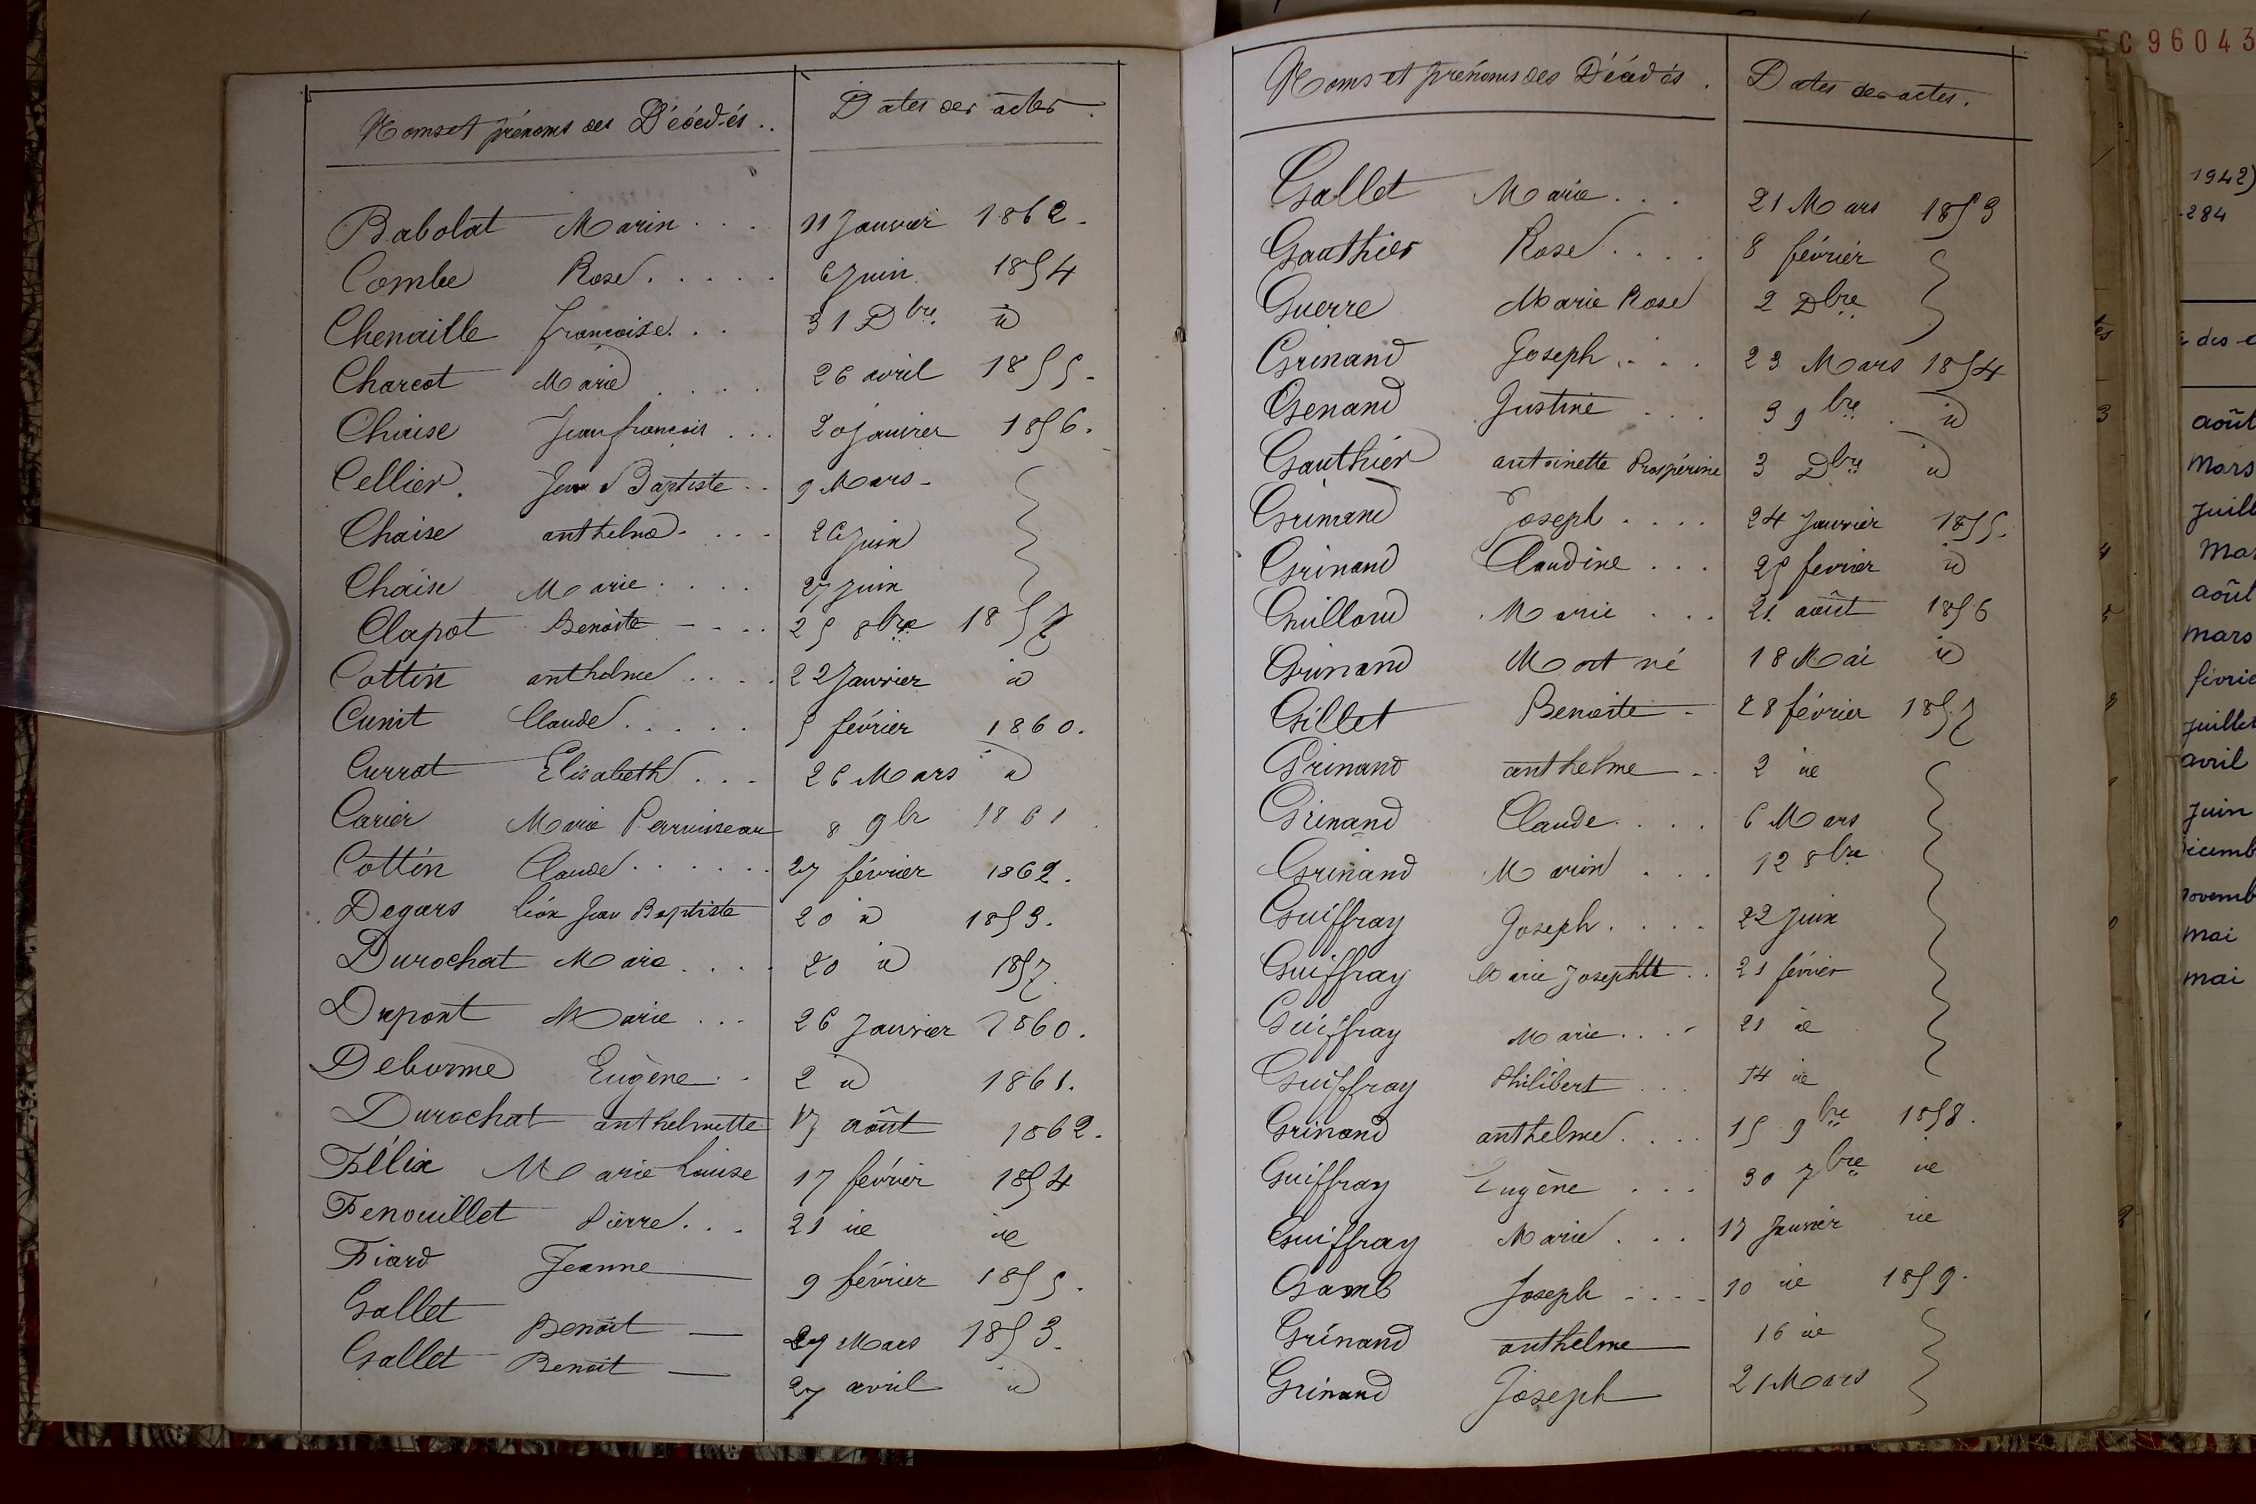 Noms et prénoms des Décédés.. Dates des actes.
Babolat Marin... 11 Janvier 1862.
Combe Rose..... 6 Juin 1854
Chenaille françoise... 31 Dbre id
Charcot Marie.... 26 avril 1855.
Chaise Jean françois... 20 janvier 1856.
Cellier. Jean Baptiste.. 9 Mars
Chaise anthelme.... 26 juin
Chaise Marie.... 27 juin
Clapot Benoîte.... 25 8bre 1857
Cottin anthelme.... 22 Janvier id
Cunit Claude..... 5 février 1860.
Currat Elisabeth... 26 Mars id
Carier Marie 8 9br 1861
Cottin Claude...... 27 février 1862.
Degars Léon Jean Baptiste 20 id 1853.
Durochat Marc.... 20 id 1857.
Dupont Marie... 26 Janvier 1860.
Deborme Eugène.. 2 id 1861.
Durochat anthelmette 17 août 1862.
Félix Marie Louise 17 février 1854
Fenouillet Pierre... 21 id id
Fiard Jeanne 9 février 1855.
Gallet Benoît 29 Mars 1853.
Gallet Benoit 27 avril id
Noms et prénoms des Décédés. Dates des actes.
Gallet Marie... 21 Mars 1853
Gauthier Rose.... 8 février
Guerre Marie Rose 2 Dbre
Grinand Joseph.... 23 Mars 1854
Genand Justine... 3 9bre. id
Gauthier antoinette Prospérine 3 Dbre id
Grimand Joseph.... 24 Janvier 1855.
Grinand Claudine... 25 fevrier id
Guilloud Marie... 21 août 1856
Grinand Mort né 18 Mai id
Gillet Benoîte 28 février 1857
Grinand anthelme.. 2 id
Grinand Claude.... 6 Mars
Grinand Marin... 12 8bre
Guiffray Joseph.... 22 juin
Guiffray Marie Josephte.. 21 février
Guiffray Marie.... 21 id
Guiffray Philibert... 14 id
Grinand anthelme.... 15 9bre 1858.
Guiffray Eugène... 30 7bre id
Guiffray Marie... 17 Janvier id
Gamb Joseph.... 10 id 1859.
Grinand anthelme 16 id
Grinand Joseph 21 Mars
5C96043
1942)
284
des
août
mars
juill
août
mars
févrie
juillet
avril
juin
mai
mai